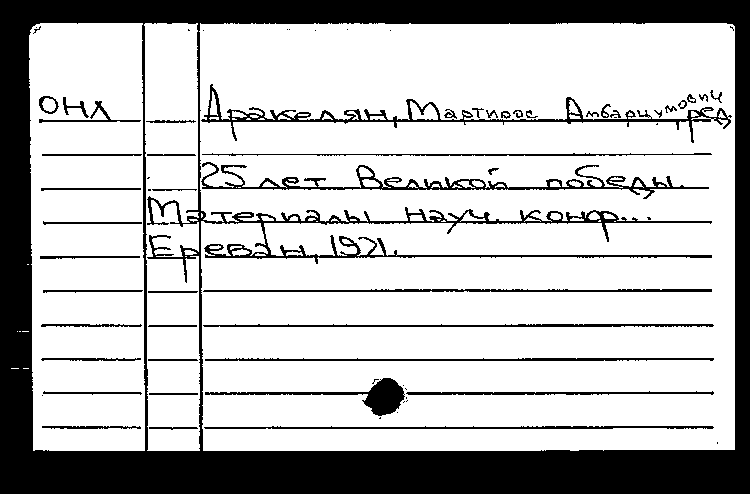 ОНЛ Аракелян, Мартирос Амбарцумович, ред.
25 лет Великой победы.
Материалы науч. конф...
Ереван, 1971.